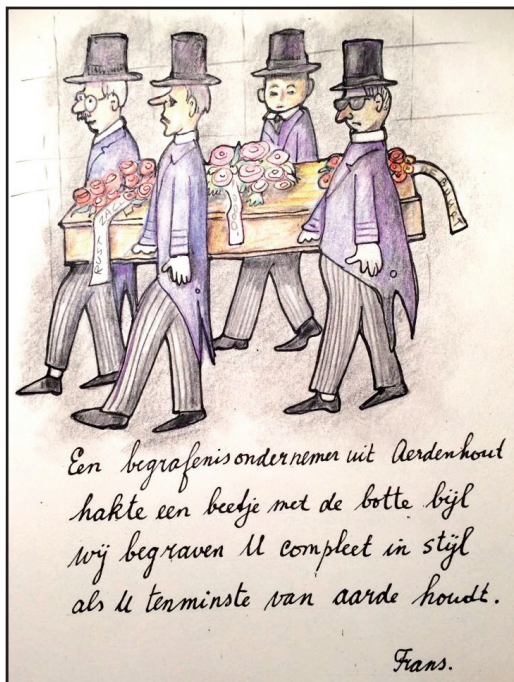 DE BUURT
Een begrafenisondernemer uit Aerdenhout
hakte een beetje met de botte bijl
wij begraven U compleet in stijl
als U tenminste van aarde houdt.
Frans.